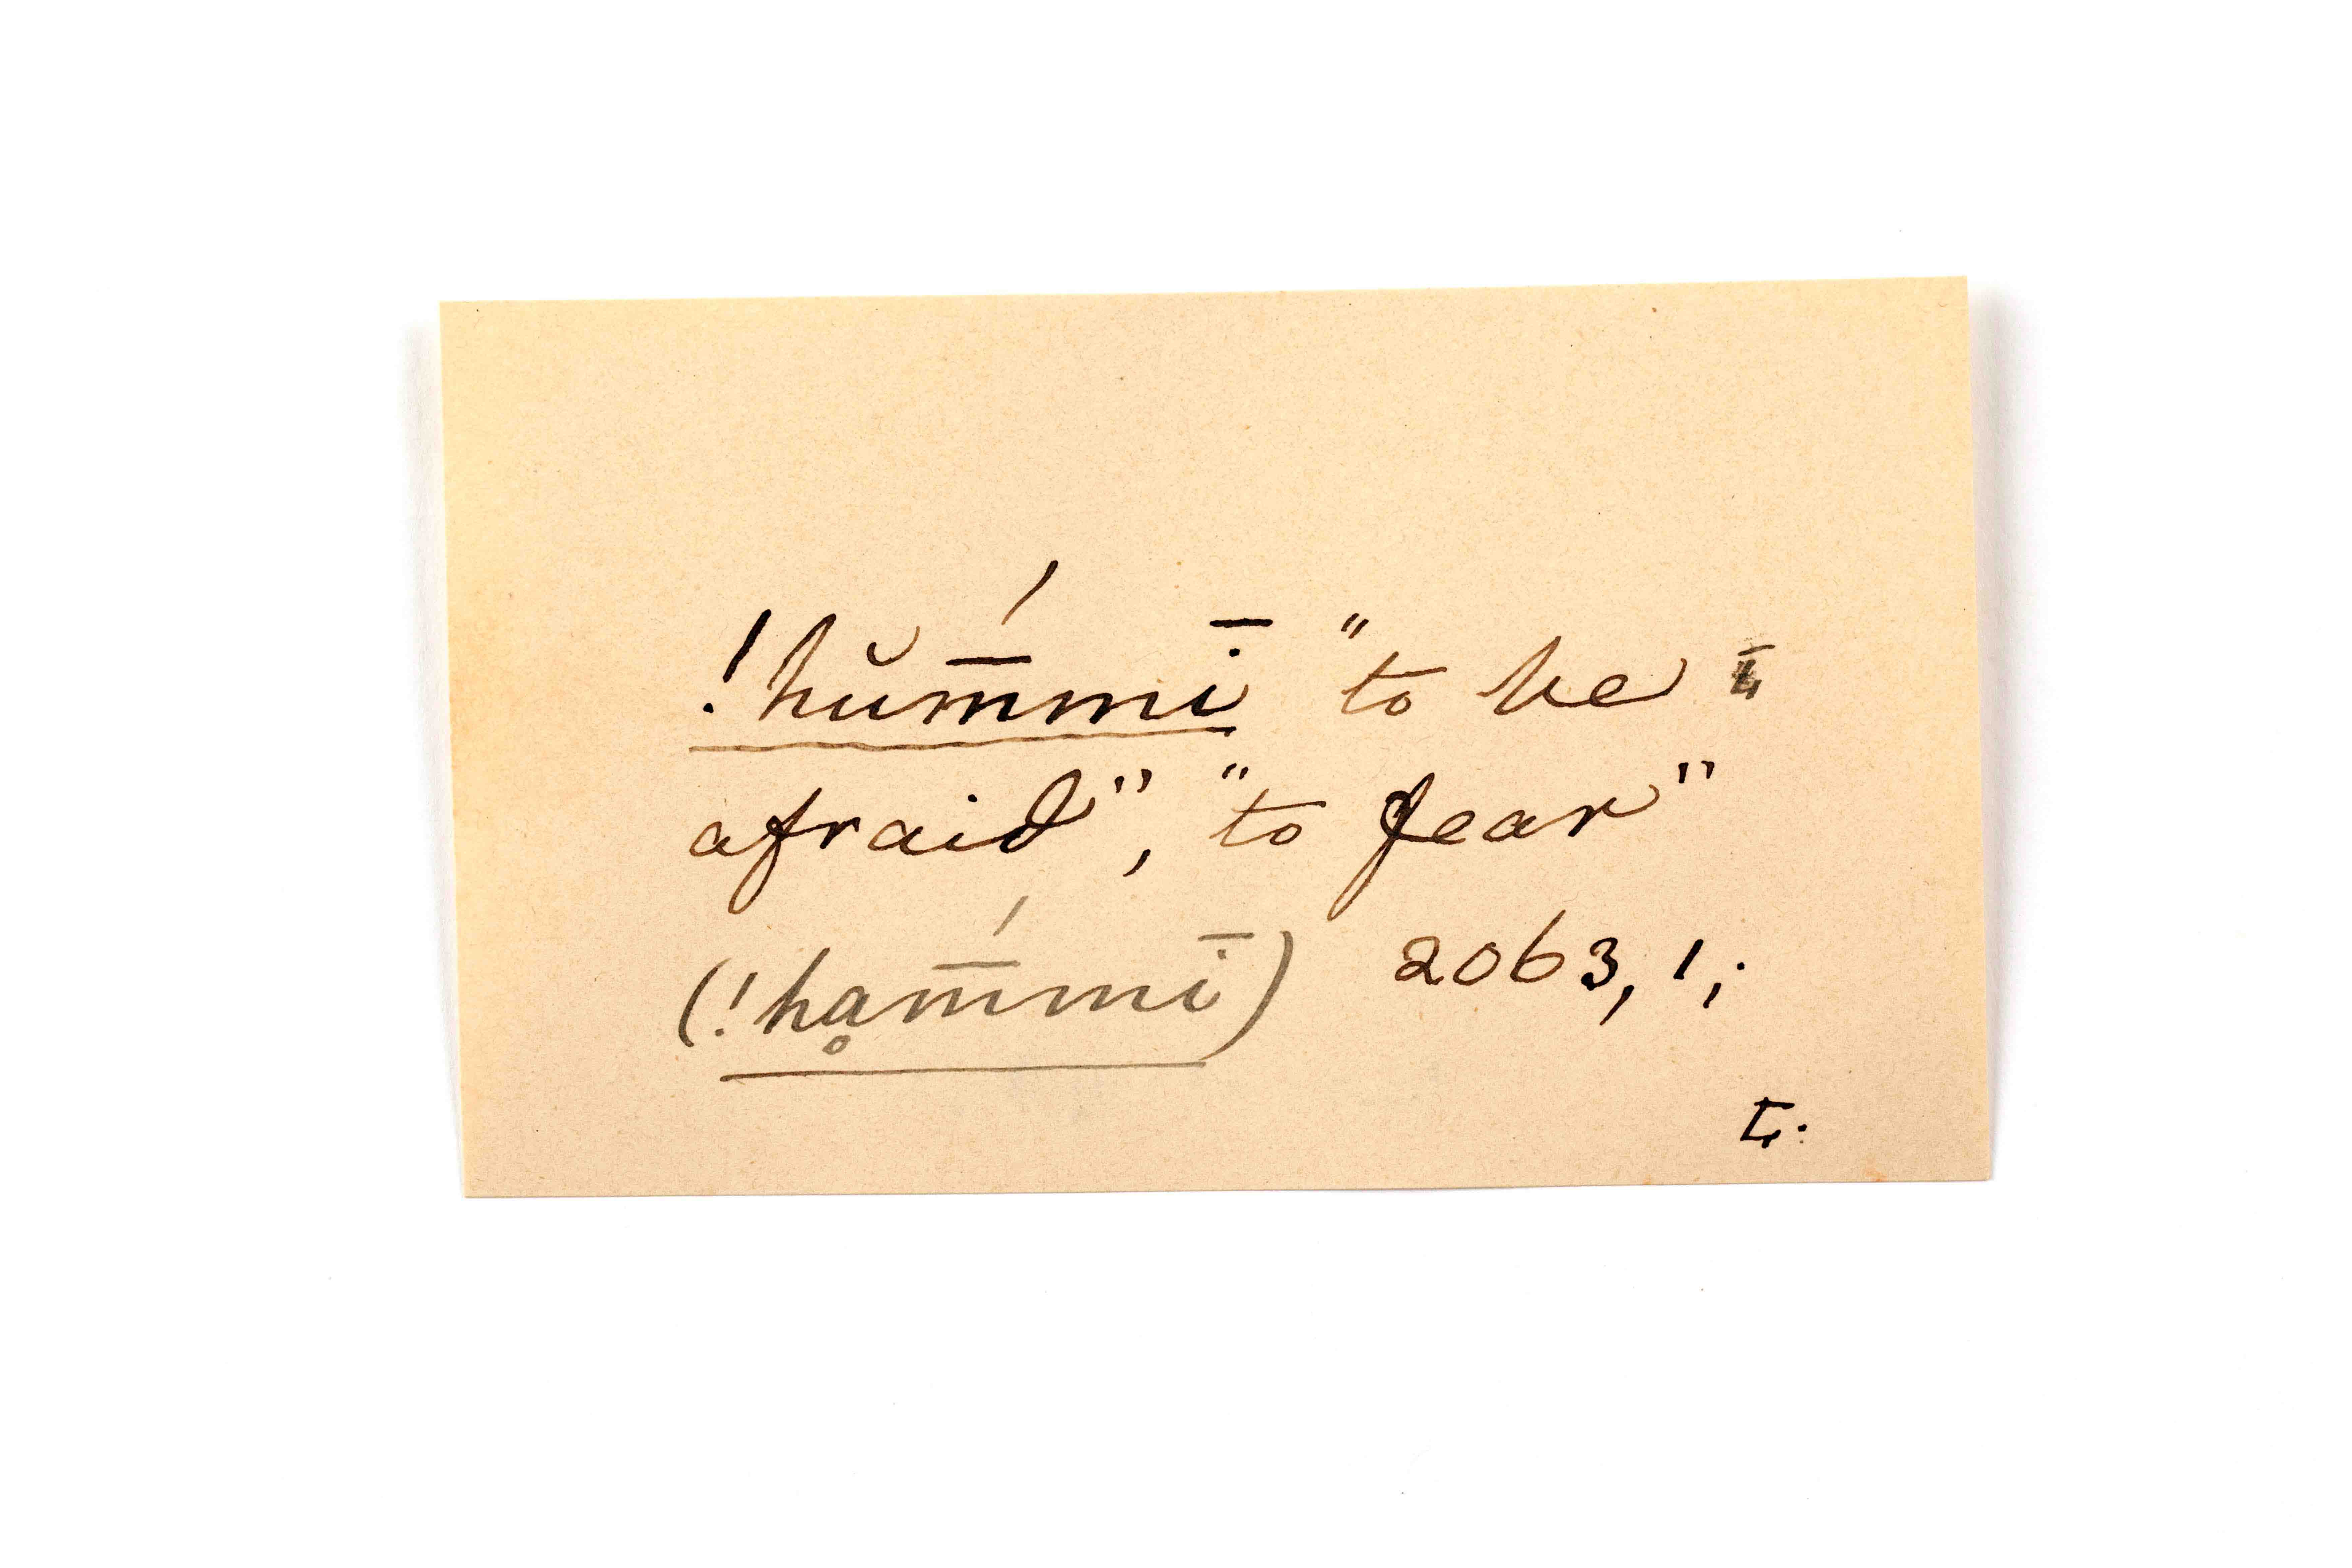 !hŭm̄́mī "to be
afraid", "to fear"
(!hḁm̄́mī) 2063, 1,.